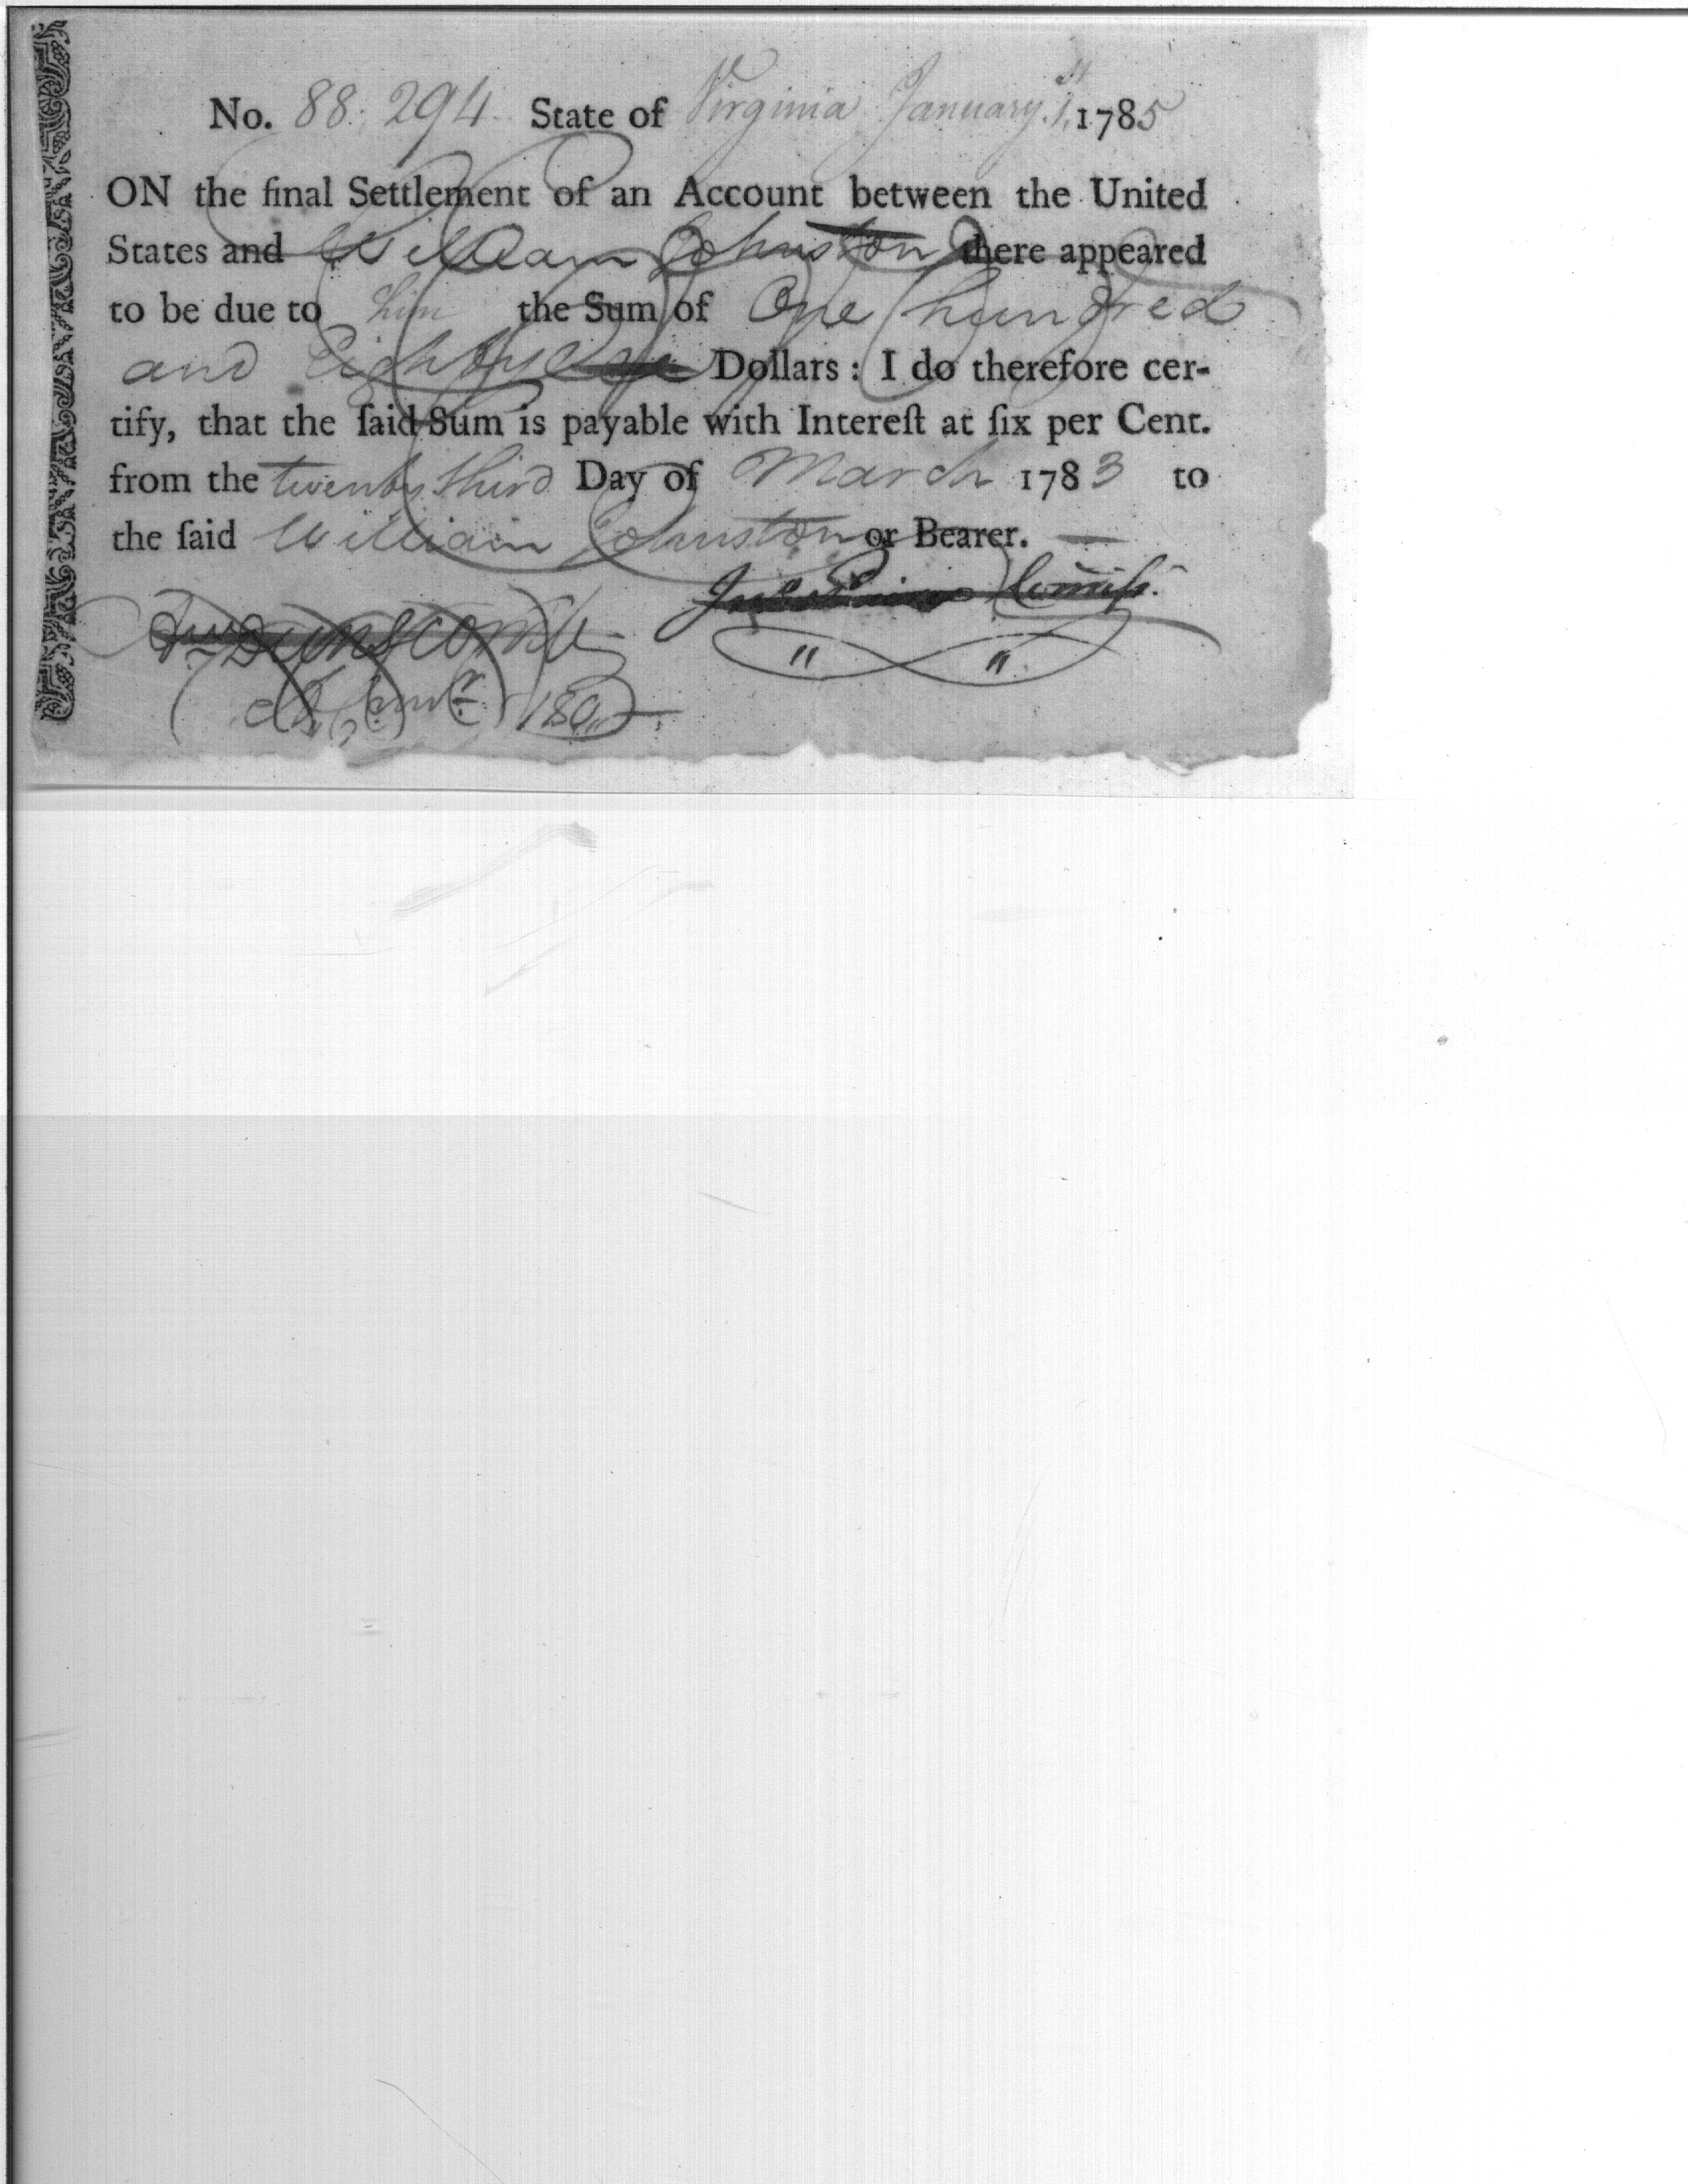 No. 88.294 State of Virginia January 1st, 1785
ON the final Settlement of an Account between the United
States and William Johnston there appeared
to be due to him the Sum of One hundred
and Eighty One Dollars : I do therefore cer-
tify, that the ſaid Sum is payable with Intereſt at ſix per Cent.
from the twenty third Day of March 1783 to
the ſaid William Johnston or Bearer.
Dunscomb